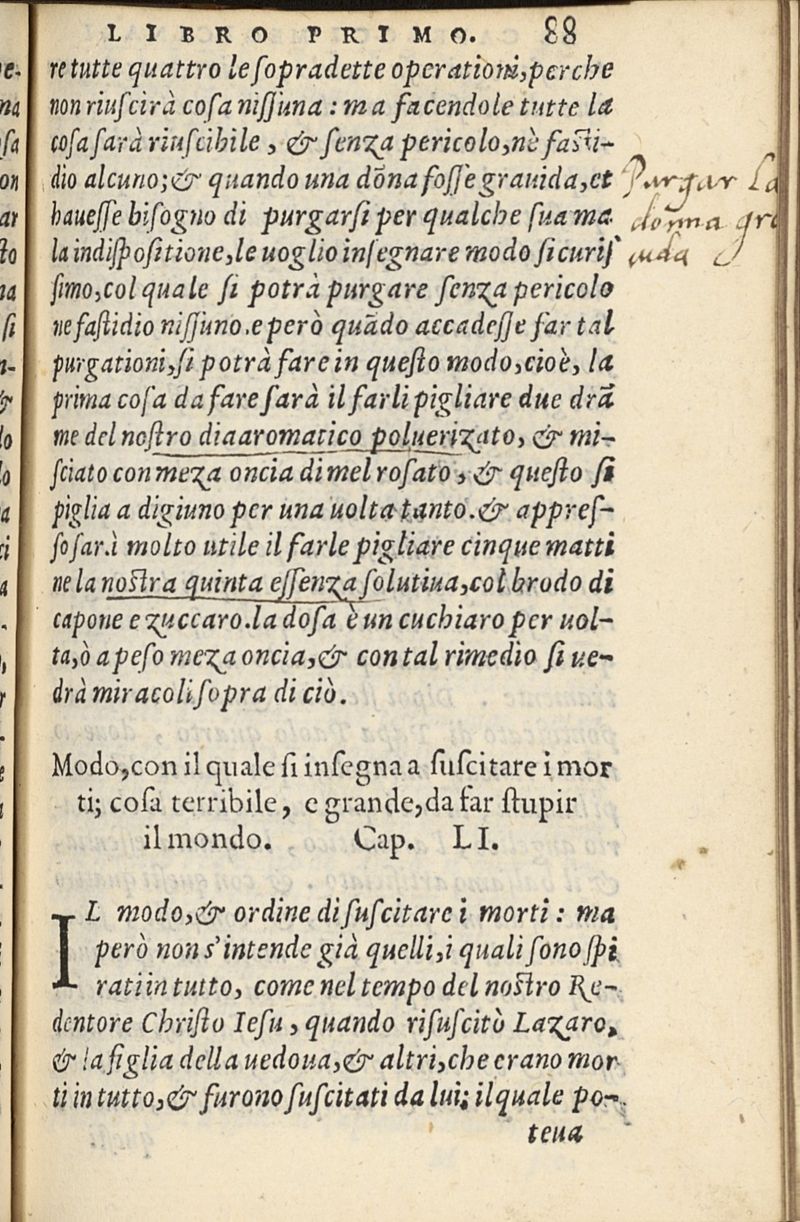 LIBRO PRIMO. 88
re tutte quattro le sopradette operationi, perche
non riuscirà cosa nissuna: ma facendole tutte la
cosa sarà riuscibile, & senza pericolo, nè fasti-
dio alcuno; & quando una dōna fosse grauida, et
hauesse bisogno di purgarsi per qualche sua ma
la indispositione, le uoglio insegnare modo sicuris
simo, col quale si potrà purgare senza pericolo
ne fastidio nissuno. e però quādo accadesse far tal
purgationi, si potrà fare in questo modo, cioè, la
prima cosa da fare sarà il farli pigliare due drā
me del nostro diaaromatico poluerizato, & mi-
sciato con meza oncia di mel rosato, & questo si
piglia a digiuno per una uolta tanto. & appres-
so sarà molto utile il farle pigliare cinque matti
ne la nostra quinta essenza solutiua, col brodo di
capone e zuccaro. la dosa è un cuchiaro per uol-
ta, ò a peso meza oncia, & con tal rimedio si ue-
drà miracoli sopra di ciò.
Purgar la
donna gra
uida
Modo, con il quale si insegna a suscitare i mor
ti; cosa terribile, e grande, da far stupir
il mondo. Cap. LI.
IL modo, & ordine di suscitare i morti: ma
però non s'intende già quelli, i quali sono spi
rati in tutto, come nel tempo del nostro Re-
dentore Christo Iesu, quando risuscitò Lazaro,
& la figlia della uedoua, & altri, che erano mor
ti in tutto, & furono suscitati da lui; il quale po-
teua